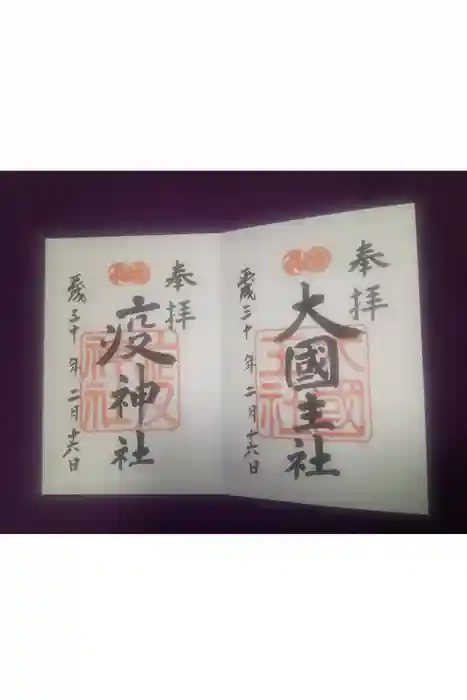 奉拝
大國主社
平成三十年二月十六日
奉拝
疫神社
平成三十年二月十六日
大國主社
疫神社